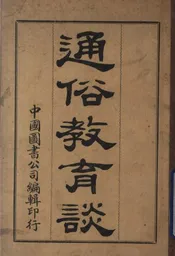 通俗教育談
中國圖書公司編輯印行